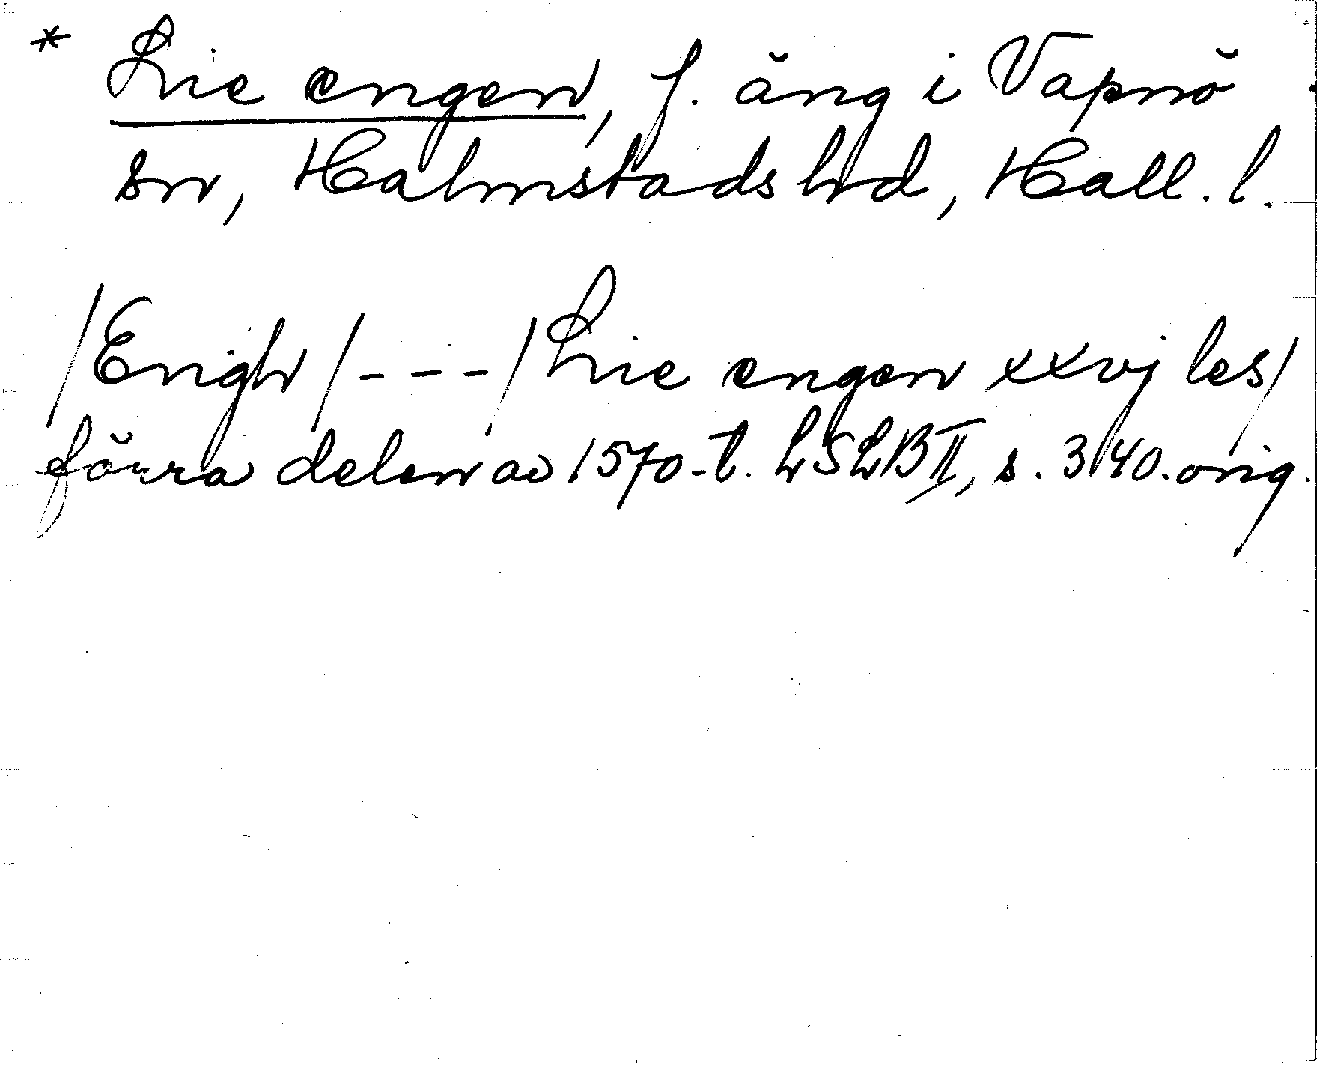 * Lie engen, f. äng i Vapnö
sn, Halmstads hd, Hall. l.
/Engh/---/Lie engen xxvj les/
förra delen av 1570-t. LSLB II, s. 340. orig.